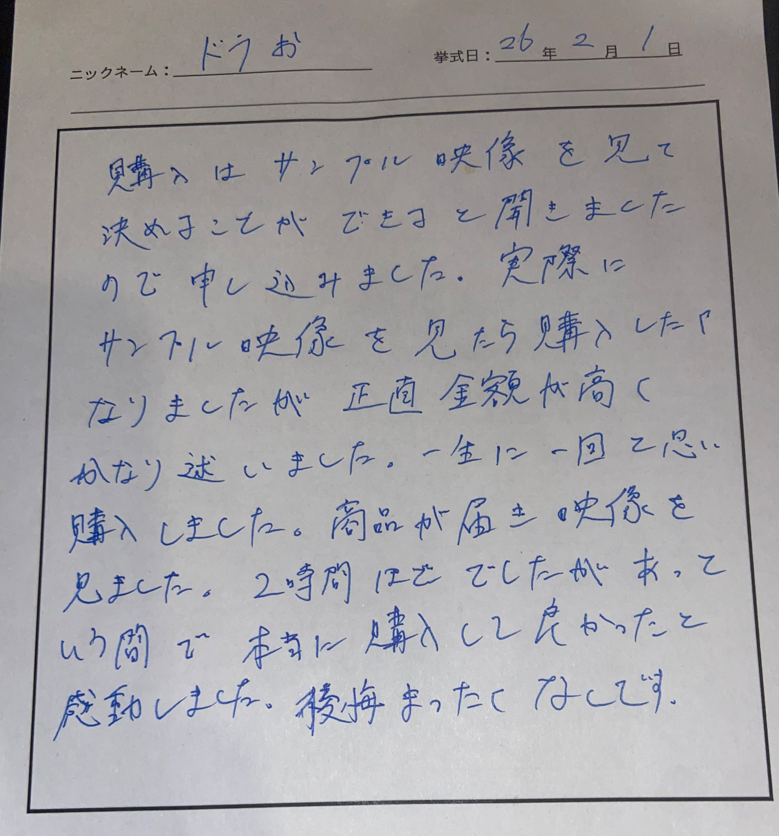 ニックネーム: ドラお 挙式日: 26 年 2 月 1 日
購入は サンプル 映像 を 見て
決めることが できると 聞きました
ので 申し込みました。 実際に
サンプル 映像 を 見たら 購入したく
なりましたが 正直 金額が高く
かなり 迷いました。一生に一回と思い
購入しました。商品が届き 映像を
見ました。2時間ほどでしたが あって
いう間で 本当に 購入して良かったと
感動しました。後悔まったくなしです。